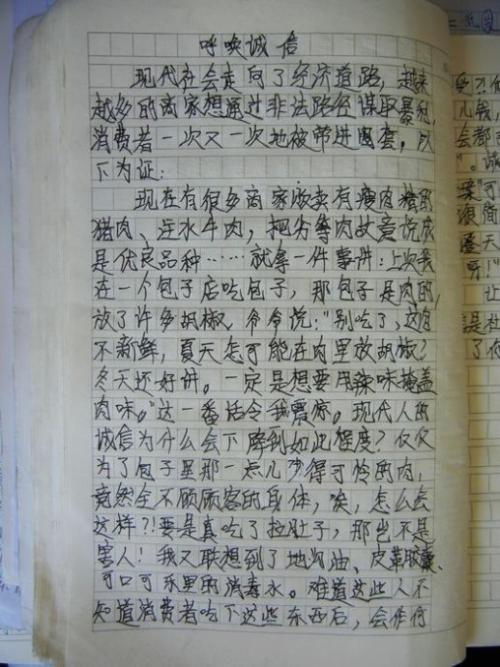 呼唤诚信
现代社会走向了经济道路，越来
越多的商家想通过非法路经谋取暴利，
消费者一次又一次地被带进圈套，以
下为证：
现在有很多商家收卖有瘦肉精的
猪肉、注水牛肉，把劣等肉故意说成
是优良品种……就拿一件事讲：上次我
在一个包子店吃包子，那包子是肉的，
放了许多胡椒，爷爷说："别吃了，这肉
不新鲜，夏天怎可能在肉里放胡椒？
冬天还好讲。一定是想要用辣味掩盖
肉味。"这一番话令我震惊。现代人的
诚信为什么会下降到如此程度？仅仅
为了包子里那一点儿少得可怜的肉，
竟然全不顾顾客的身体，唉，怎么会
这样？！要是真吃了拉肚子，那岂不是
害人！我又联想到了地沟油、皮革胶囊、
可口可乐里的消毒水。难道这些人不
知道消费者吃下这些东西后，会作何